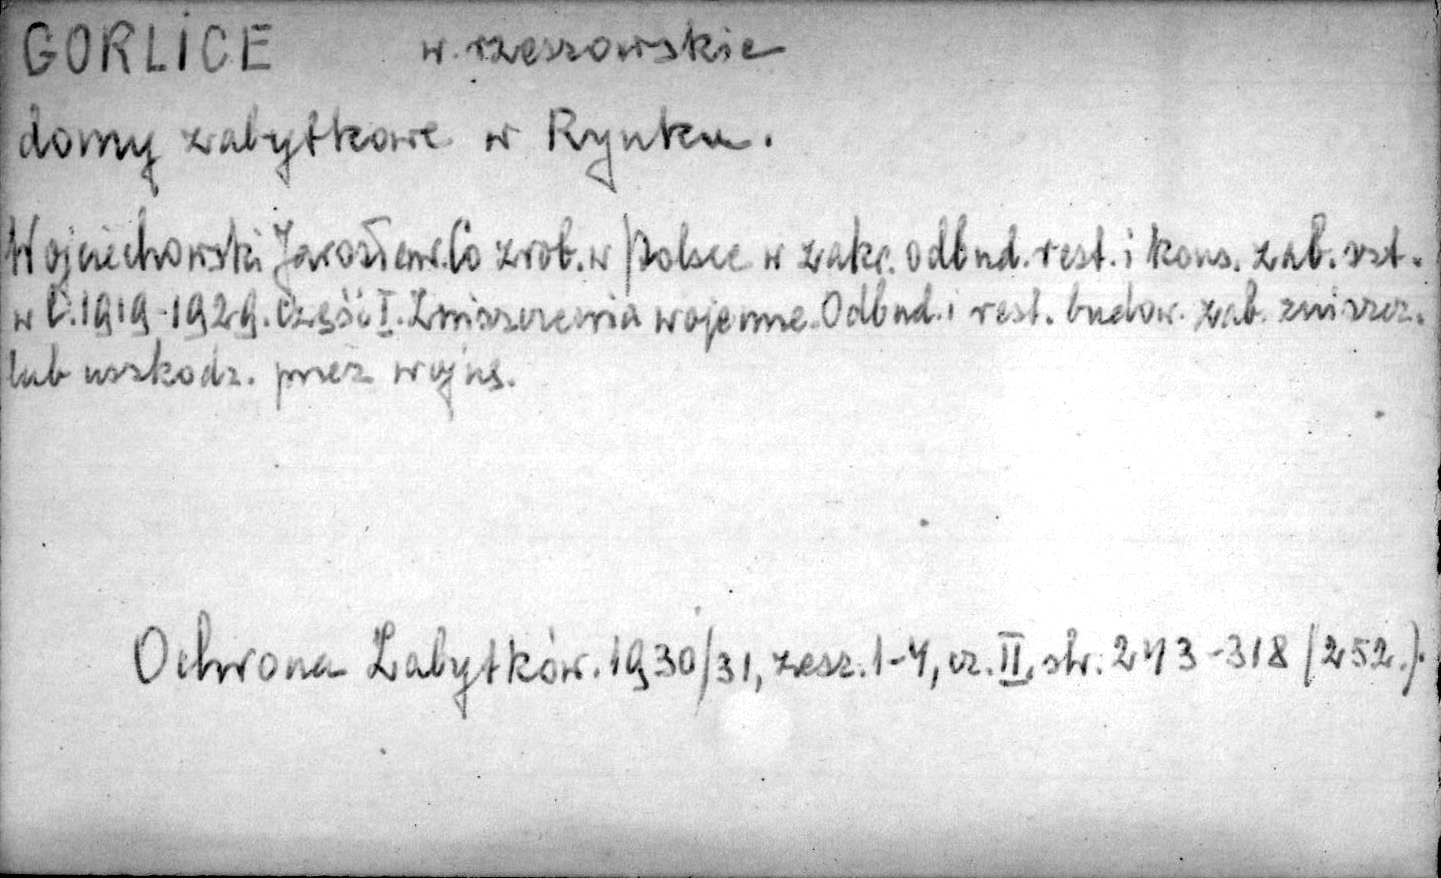 GORLICE w. rzeszowskie
domy zabytkowe w Rynku.
Wojciechowski Jarosław. Co zrob. w Polsce w zakr. odbud. rest. i kons. zab. szt.
w l. 1919-1929. Część I. Zniszczenia wojenne. Odbud. i rest. budow. zab. zniszcz.
lub uszkodz. przez wojnę.
Ochrona Zabytków. 1930/31, zesz. 1-4, cz. II, str. 243-318 (252.).